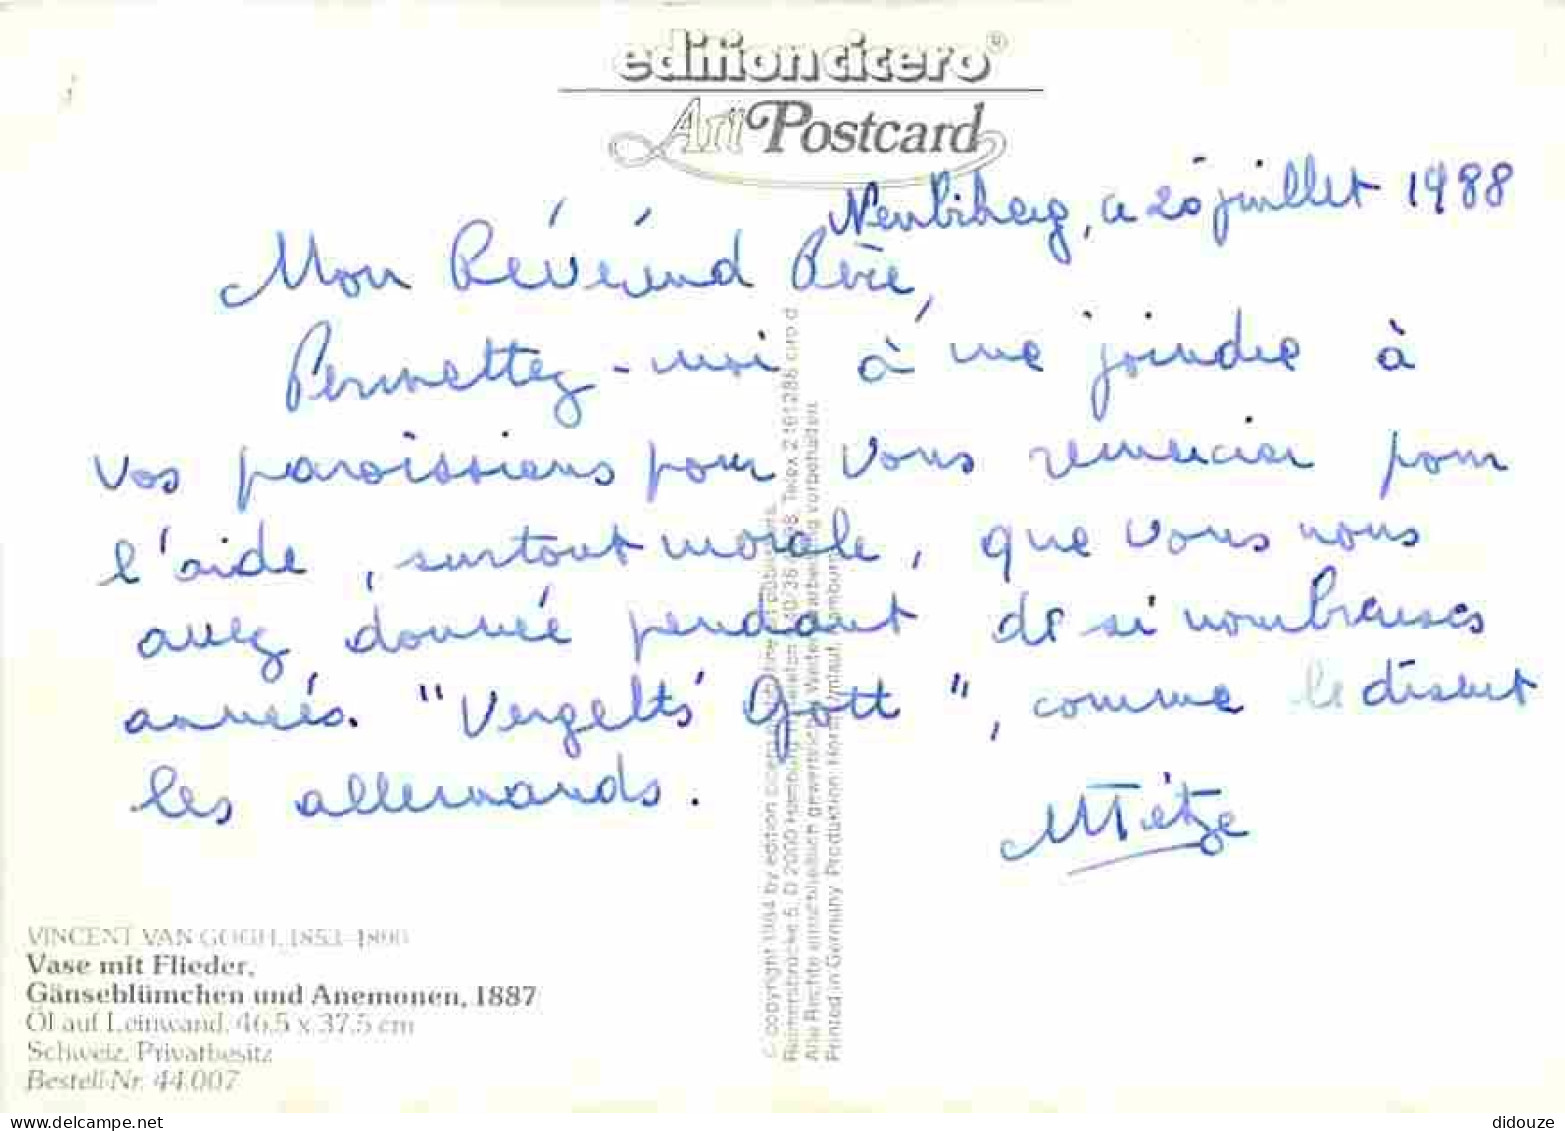 edition cicero®
Art Postcard
Neubiberg, ce 20 juillet 1988
Mon Révérend Père,
Permettez-moi à me joindre à
vos paroissiens pour vous remercier pour
l'aide, surtout morale, que vous nous
avez donnée pendant de si nombreuses
années. "Vergelt's Gott", comme le disent
les allemands.
VINCENT VAN GOGH, 1853–1890
Vase mit Flieder,
Gänseblümchen und Anemonen, 1887
Öl auf Leinwand, 46,5 x 37,5 cm
Schweiz, Privatbesitz
Bestell-Nr. 44.007
© copyright 1984 by edition cicero
D 2000 Hamburg
Alle Rechte einschließlich gewerblicher Weiterverarbeitung vorbehalten.
Printed in Germany. Produktion:
didouze